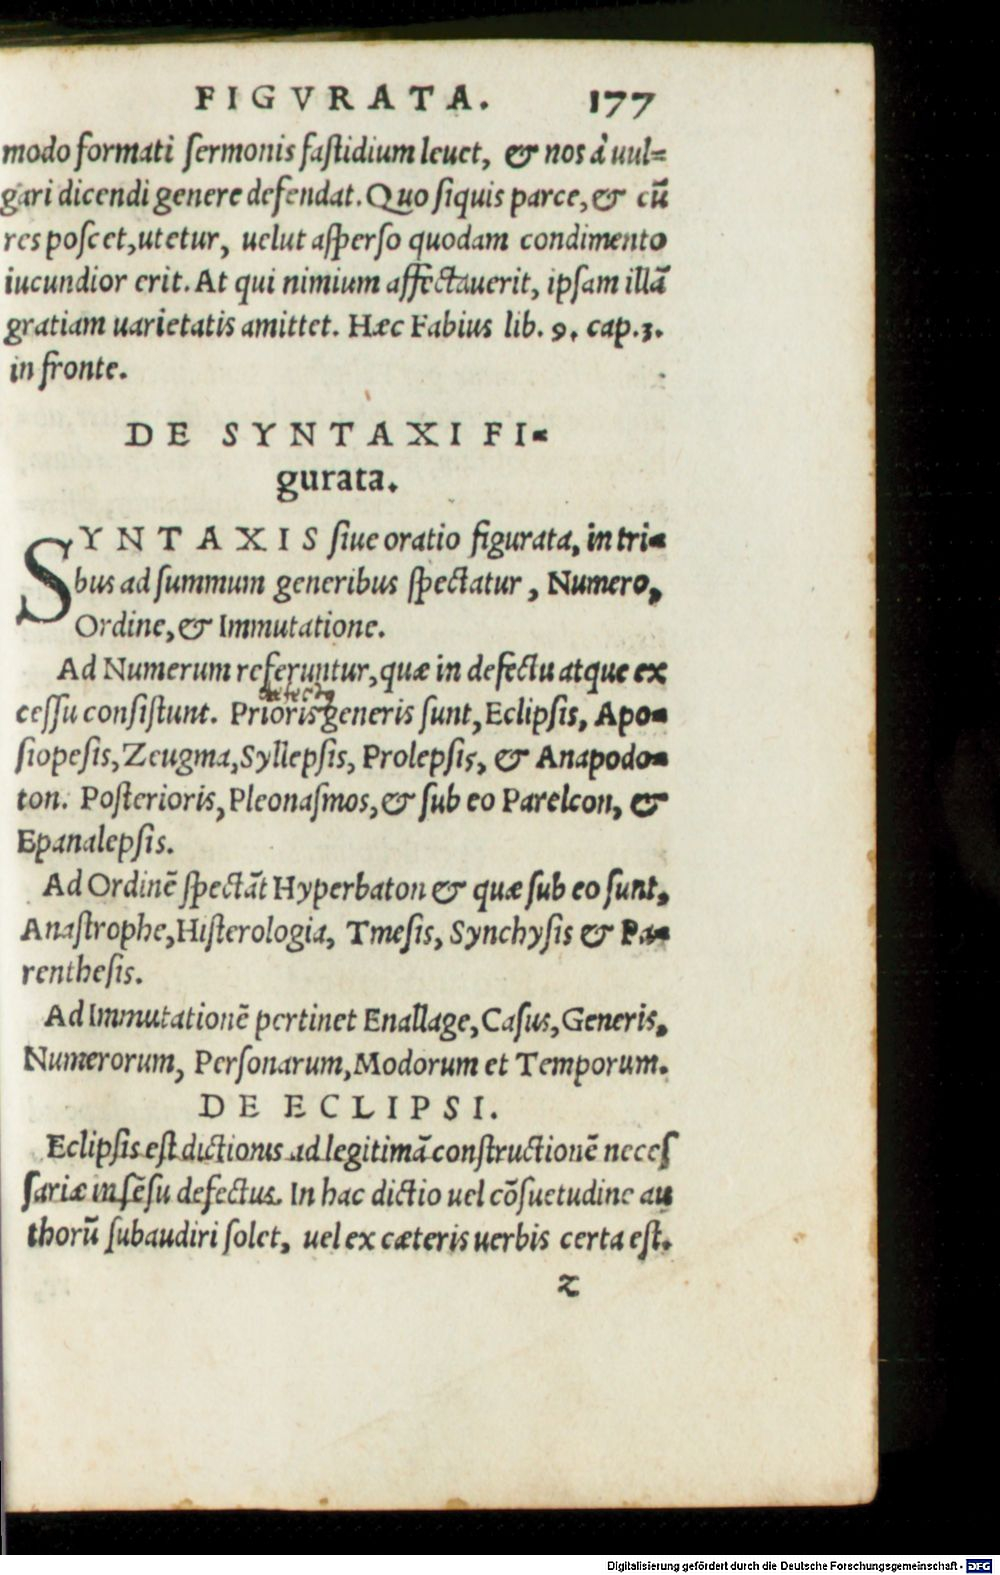 FIGVRATA. 177
modo formati ſermonis faſtidium leuet, & nos à uul=
gari dicendi genere defendat. Quo ſiquis parce, & cū
res poſcet, utetur, uelut aſperſo quodam condimento
iucundior erit. At qui nimium affectauerit, ipſam illā
gratiam uarietatis amittet. Hæc Fabius lib. 9. cap.3.
in fronte.
DE SYNTAXI FI-
gurata.
SYNTAXIS ſiue oratio figurata, in tri-
bus ad ſummum generibus ſpectatur, Numero,
Ordine, & Immutatione.
Ad Numerum referuntur, quæ in defectu atque ex
ceſſu conſiſtunt. Prioris generis ſunt, Eclipſis, Apo-
ſiopeſis, Zeugma, Syllepſis, Prolepſis, & Anapodo-
ton. Poſterioris, Pleonaſmos, & ſub eo Parelcon, &
Epanalepſis.
Ad Ordinē ſpectāt Hyperbaton & quæ ſub eo ſunt,
Anaſtrophe, Hiſterologia, Tmeſis, Synchyſis & Pa-
rentheſis.
Ad Immutationē pertinet Enallage, Caſus, Generis,
Numerorum, Perſonarum, Modorum et Temporum.
DE ECLIPSI.
Eclipſis eſt dictionis ad legitimā conſtructionē neceſ
ſariæ in ſēſu defectus. In hac dictio uel cōſuetudine au
thorū ſubaudiri ſolet, uel ex cæteris uerbis certa eſt.
z
Digitalisierung gefördert durch die Deutsche Forschungsgemeinschaft - DFG